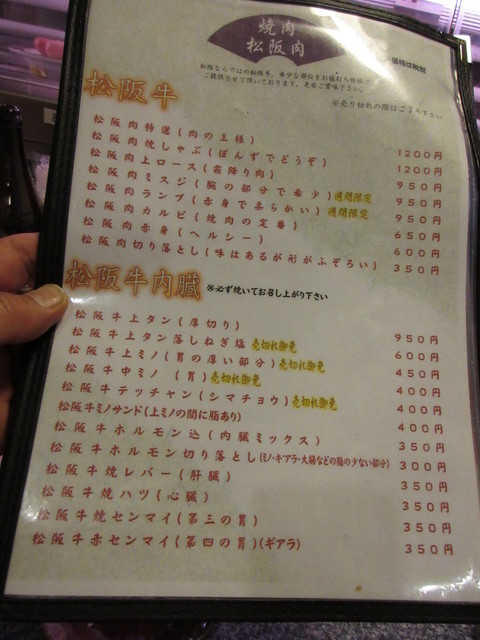 焼肉
松阪肉
価格は税別
松阪ならではの松阪牛、希少な部位をお値打ち価格で
ご提供させて頂いております。是非ご賞味下さい。
※売り切れの際はご了承下さい
松阪牛
松阪肉特選(肉の王様) 1200円
松阪肉焼しゃぶ(ぽんずでどうぞ) 1200円
松阪肉上ロース(霜降り肉) 950円
松阪肉ミスジ(腕の部分で希少)週間限定 950円
松阪肉ランプ(赤身で柔らかい)週間限定 950円
松阪肉カルビ(焼肉の定番) 650円
松阪肉赤身(ヘルシー) 600円
松阪肉切り落とし(味はあるが形がふぞろい) 350円
松阪牛内臓 ※必ず焼いてお召し上がり下さい
松阪牛上タン(厚切り) 950円
松阪牛上タン落しねぎ塩 売切れ御免 600円
松阪牛上ミノ(胃の厚い部分)売切れ御免 450円
松阪牛中ミノ (胃)売切れ御免 400円
松阪牛テッチャン(シマチョウ)売切れ御免 400円
松阪牛ミノサンド(上ミノの間に脂あり) 400円
松阪牛ホルモン込(内臓ミックス) 350円
松阪牛ホルモン切り落とし(ミノ・ギアラ・大腸などの脂の少ない部分) 300円
松阪牛焼レバー(肝臓) 350円
松阪牛焼ハツ(心臓) 350円
松阪牛焼センマイ(第三の胃) 350円
松阪牛赤センマイ(第四の胃)(ギアラ) 350円